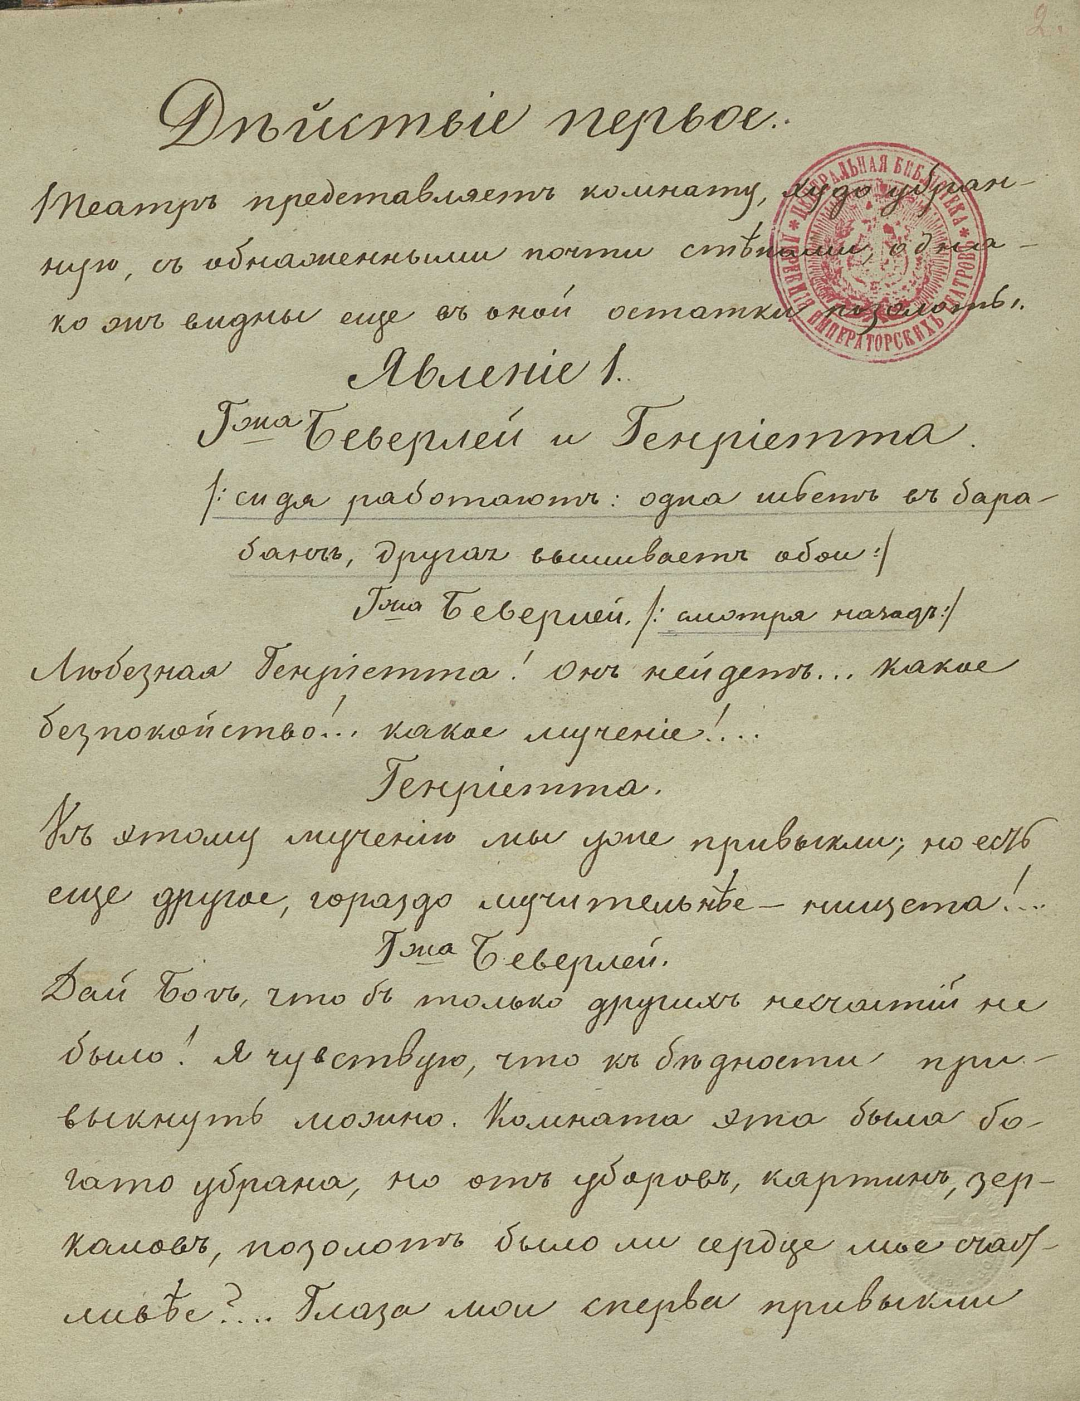 2.
Дѣйствіе первое.
Театръ представляетъ комнату, худо убран-
ную, съ обнаженными почти стѣнами, одна-
ко жъ видны еще въ оной остатки позолоты.
Явленіе 1.
Гжа Беверлей и Генріетта.
/: сидя работаютъ: одна шьетъ въ бара-
банъ, другая вышиваетъ обои :/
Гжа Беверлей. /: смотря назадъ :/
Любезная Генріетта! Онъ нейдетъ... какое
безпокойство!.. какое мученіе!...
Генріетта.
Къ этому мученію мы уже привыкли; но есть
еще другое, гораздо мучительнѣе — нищета!...
Гжа Беверлей.
Дай Богъ, что бъ только другихъ несчастій не
было! Я чувствую, что къ бѣдности при-
выкнуть можно. Комната эта была бо-
гато убрана, но отъ уборовъ, картинъ, зер-
каловъ, позолотъ было ли сердце мое счаст-
ливѣе?... Глаза мои сперва привыкли
ЦЕНТРАЛЬНАЯ БИБЛИОТЕКА * ДИРЕКЦІИ ИМПЕРАТОРСКИХЪ ТЕАТРОВЪ *